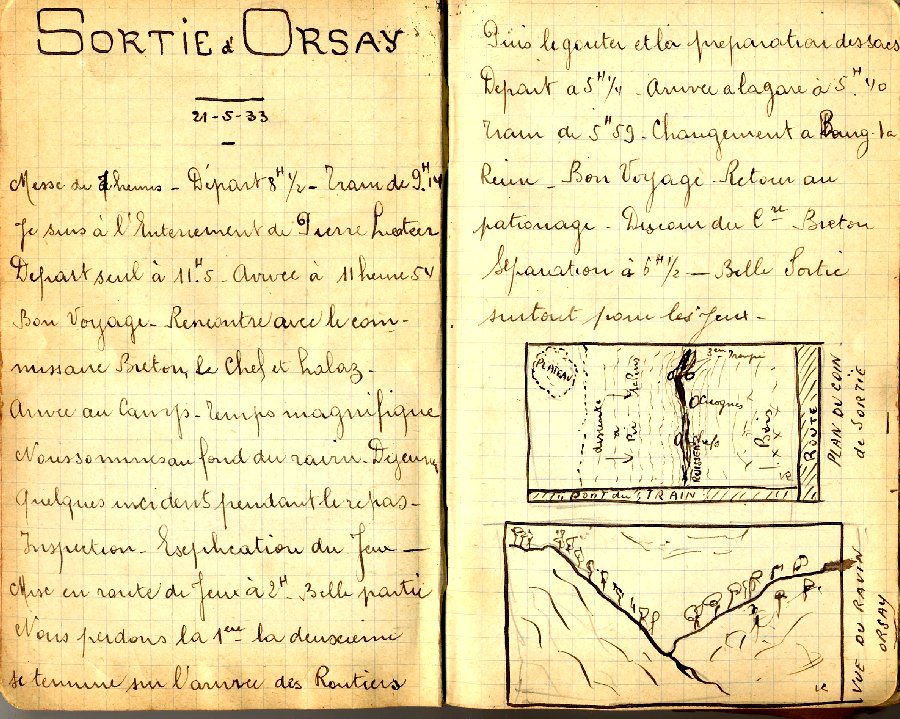 SORTIE d' ORSAY
21-5-33
Messe de 7 heures - Départ 8H 1/2 - Train de 9H 14
Je suis à l'Enterrement de Pierre
Depart seul à 11H5 - Arrivée à 11 heure 54
Bon Voyage - Rencontre avec le com-
missaire Breton, le Chef et Lalaz -
Arrivée au Camp - Temps magnifique
Nous sommes au fond du ravin. Déjeuner
Quelques incident pendant le repas -
Inspection - Explication du Jeu -
Mise en route de Jeu à 2H. Belle partie
Nous perdons la 1ere la deuxieme
se termine sur l'arrivée des Routiers
Puis le gouter et la preparation des sacs
Depart a 5H 1/4 - Arrivée a la gare à 5H.40
Train de 5H59 - Changement a Bourg-la
Reine - Bon Voyage - Retour au
patronage - Discour du Cre Breton
Séparation à 6H 1/2 - Belle Sortie
surtout pour les Jeux -
PLATEAU
descente
à
Pic
3em
Cocques
Chefs
RUISSEAU
Bois
ROUTE
PONT du TRAIN
PLAN DU COIN
de SORTIE
VUE DU RAVIN
ORSAY